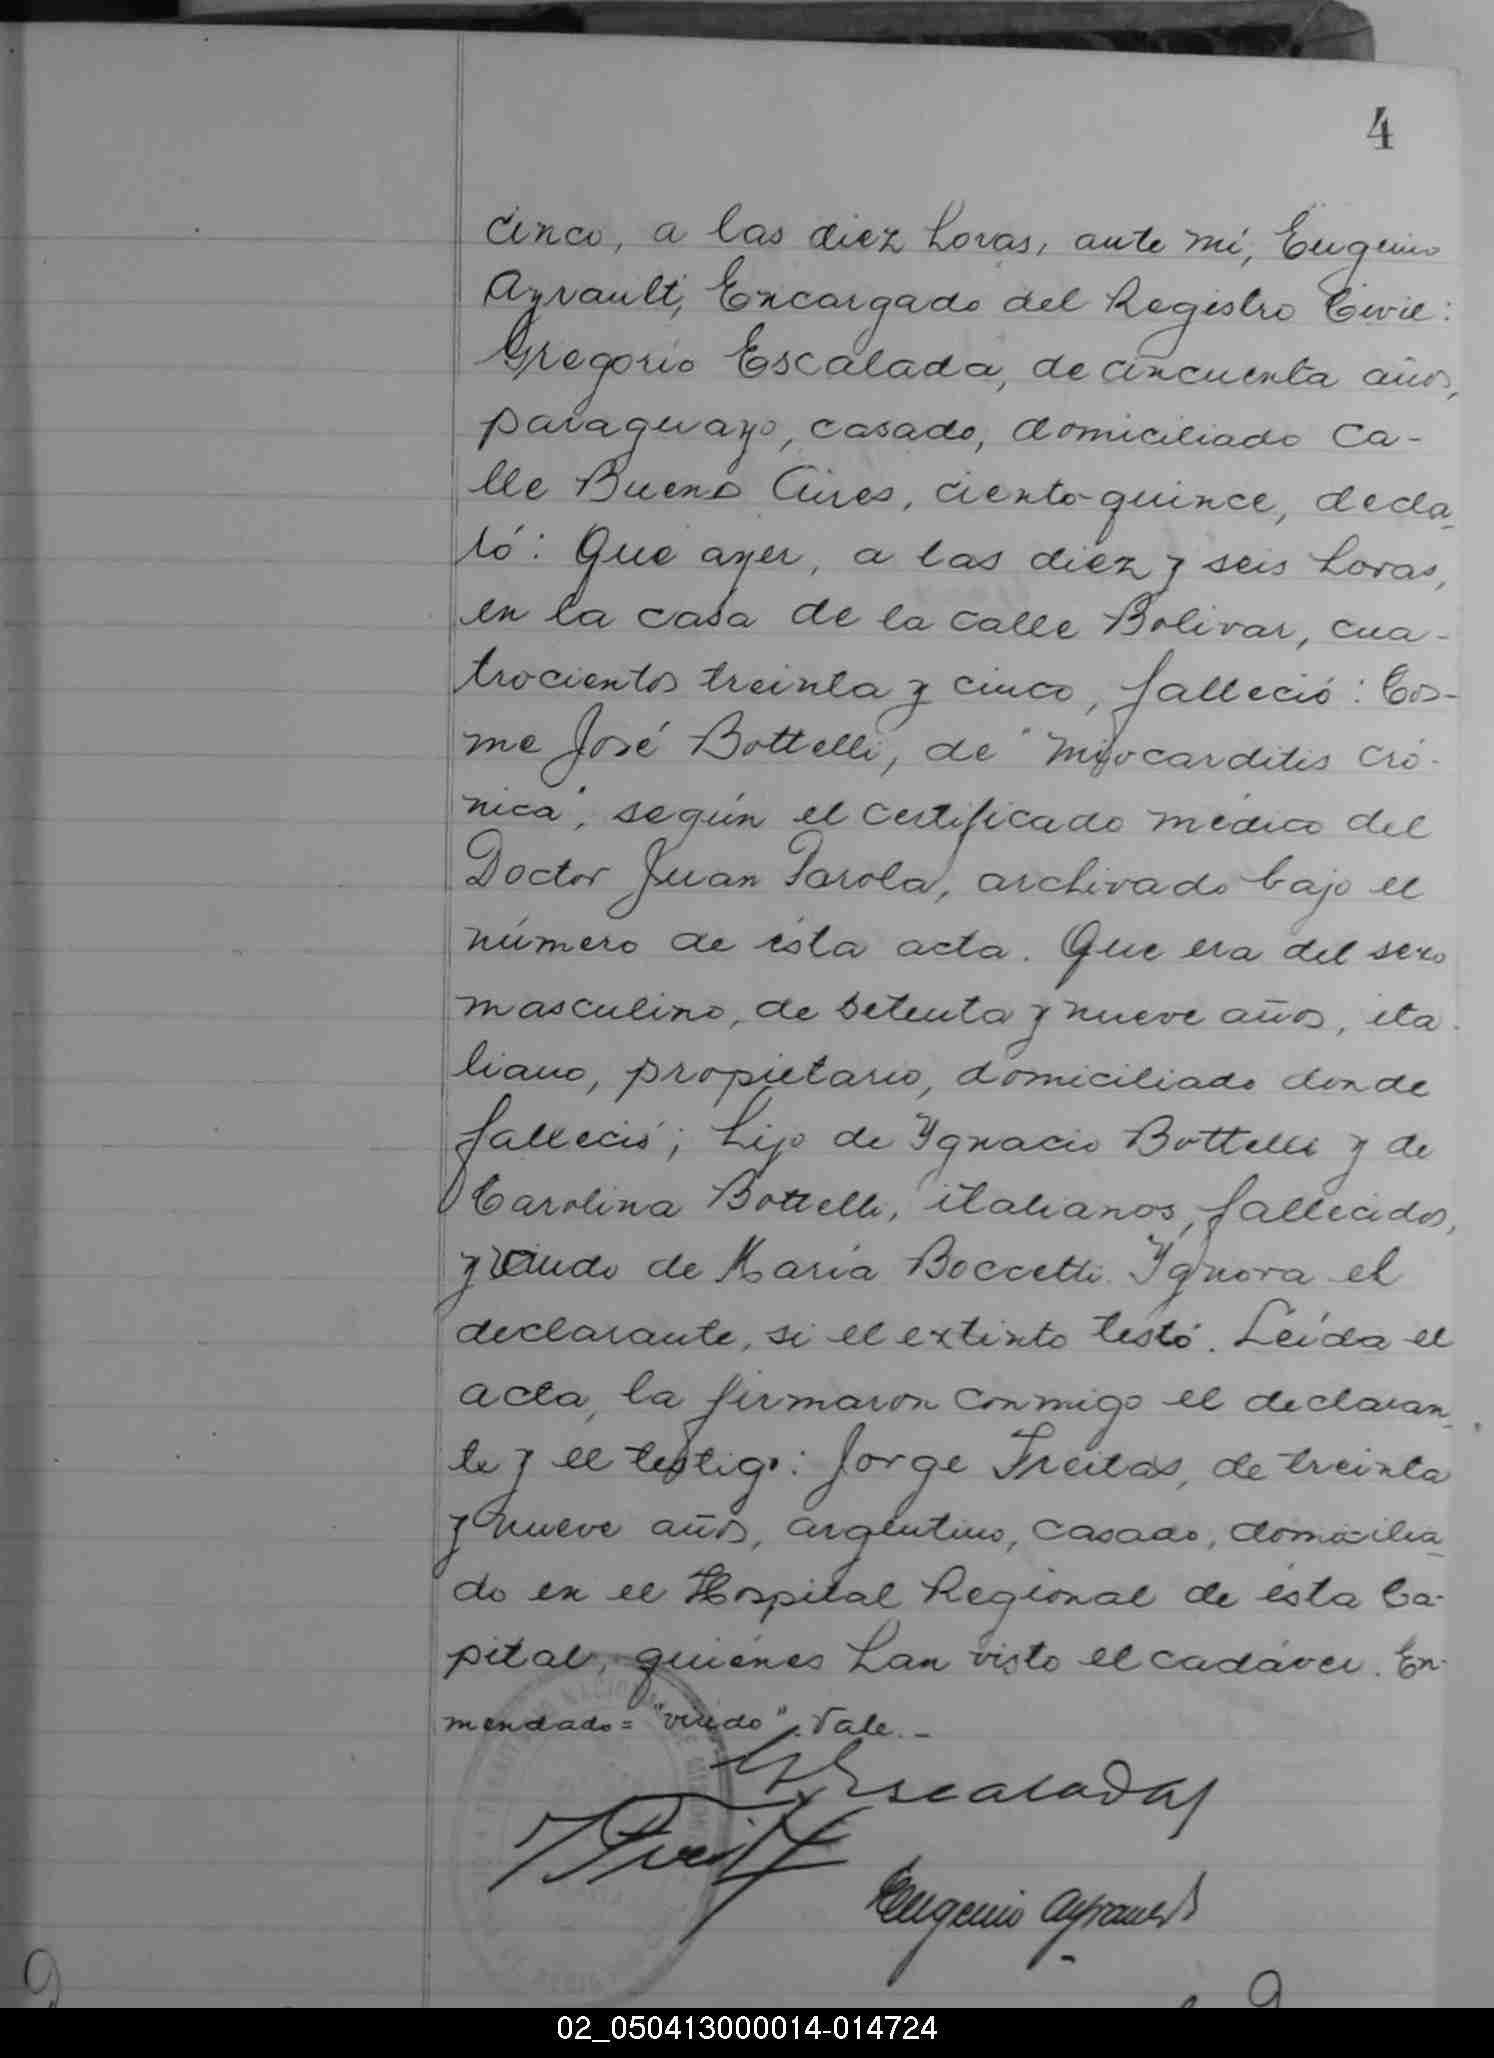 4
cinco, a las diez horas, ante mí, Eugenio
Ayrault, Encargado del Registro Civil:
Gregorio Escalada, de cincuenta años,
paraguayo, casado, domiciliado ca-
lle Buenos Aires, ciento quince, decla-
ró: Que ayer, a las diez y seis horas,
en la casa de la calle Bolivar, cua-
trocientos treinta y cinco, falleció: Cos-
me José Bottelli, de "miocarditis cró-
nica", según el certificado médico del
Doctor Juan Parola, archivado bajo el
número de ésta acta. Que era del sexo
masculino, de setenta y nueve años, ita-
liano, propietario, domiciliado donde
falleció; hijo de Ygnacio Bottelli y de
Carolina Bottelli, italianos, fallecidos,
y viudo de María Boccetti. Ygnora el
declarante, si el extinto testó. Leída el
acta, la firmaron conmigo el declaran-
te y el testigo: Jorge Freitas, de treinta
y nueve años, argentino, casado, domicilia-
do en el Hospital Regional de ésta Ca-
pital, quiénes han visto el cadáver. En-
mendado = "viudo". Vale.-
G Escalada
J Freitas
Eugenio Ayrault
02_050413000014-014724